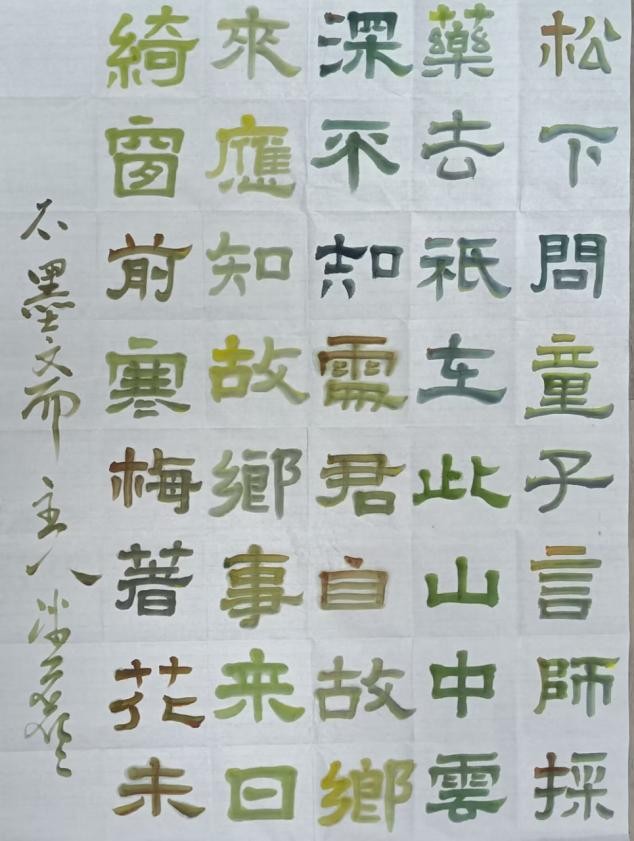 松下問童子言師採
藥去祇在此山中雲
深不知處君自故鄉
來應知故鄉事来日
綺窗前寒梅著花未
墨文而主人